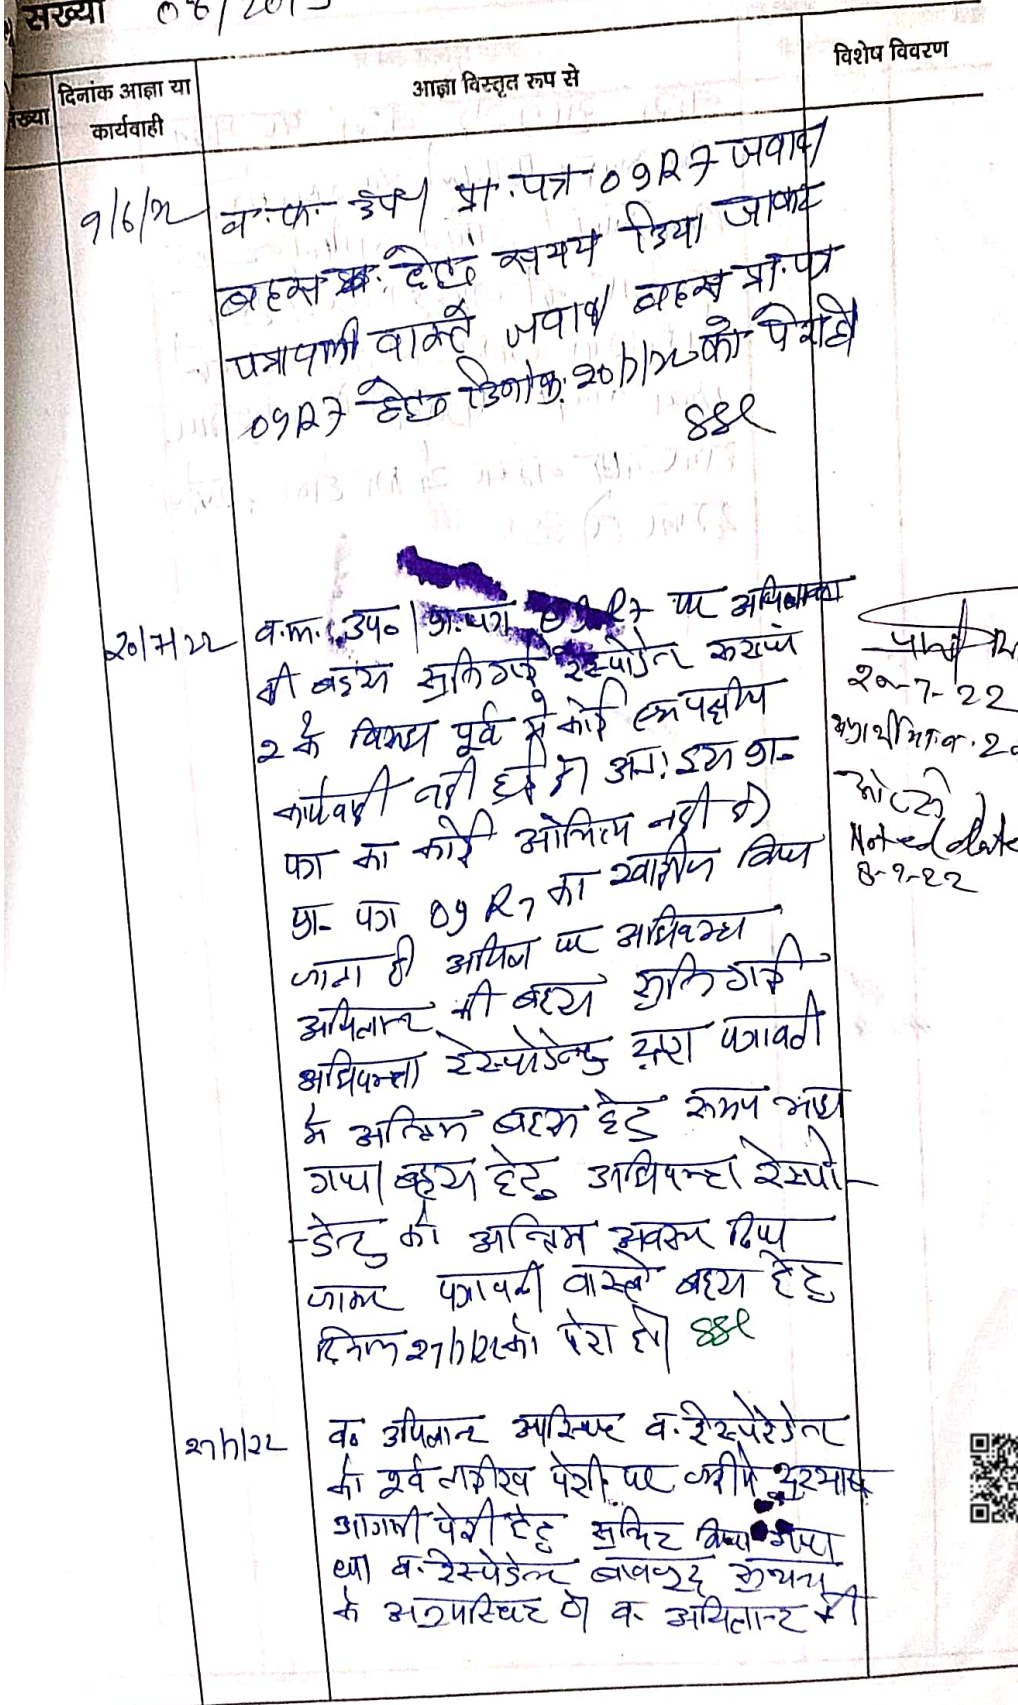 संख्या 06/201
ख्या
दिनांक आज्ञा या
कार्यवाही
आज्ञा विस्तृत रूप से
विशेष विवरण
9/6/22 व.फ. उप। प्रा. पत्र 09R7 जवाब/
बहस प्रा. हेतु समय दिया जाकर
पत्रावली वास्ते जवाब/ बहस प्रा. पत्र
09R7 हेतु दिनांक 20/7/22 को पेश हो
20/7/22 व.फ. उप०। प्रा. पत्र 09R7 पर अपिलान्ट
की बहस सुनि गई रेस्पोडेन्ट
2 के विरूद्ध पूर्व में कोई एक पक्षीय
कार्यवाही नही हुई है अत: इस प्रा-
पत्र का कोई औचित्य नही है।
प्रा- पत्र 09 R7 का खारीज किया
जाता है अपिल पर अधिवक्ता
अपिलान्ट की बहस सुनि गई
अधिवक्ता रेस्पोडेन्ट द्वारा पत्रावली
में अन्तिम बहस हेतु समय मांगा
गया। बहस हेतु अधिवक्ता रेस्पो-
-डेन्ट को अन्तिम अवसर दिया
जाकर पत्रावली वास्ते बहस हेतु
दिनांक 27/7/22 को पेश हो।
20-7-22
Noted date
27/7/22 व० अपिलान्ट उपस्थित व. रेस्पोडेन्ट
को पूर्व तारीख पेशी पर जरीये दुरभाष
आगामी पेशी हेतु सुचित किया गया
था। व. रेस्पोडेन्ट बावजूद सूचना
के अनुपस्थित है। व. अपिलान्ट की